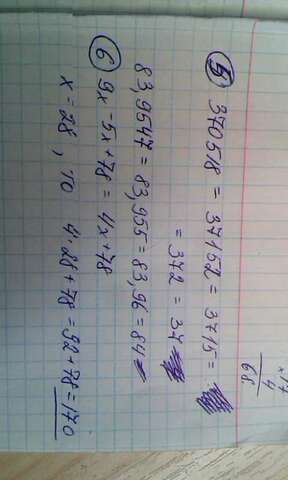 17
× 4
68
5 370518 = 37152 = 3715 =
= 372 = 37
83,9547 = 83,955 = 83,96 = 84
6 9x - 5x + 78 = 4x + 78
x = 28, то 4·28 + 78 = 92 + 78 = 170